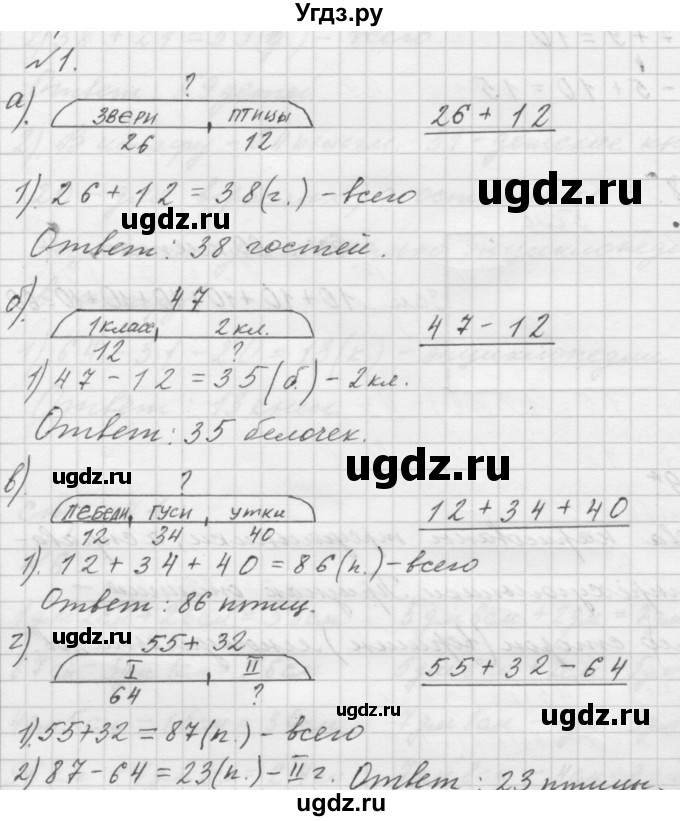 Угдз.ру
№1.
а).
?
ЗВЕРИ ПТИЦЫ
26 12
26 + 12
1). 26 + 12 = 38 (г.) - всего
ugdz.ru ugdz.ru
Ответ: 38 гостей.
б).
47
1 класс 2 кл.
12 ?
47 - 12
1) 47 - 12 = 35 (б.) - 2 кл.
Ответ: 35 белочек.
ugdz.ru ugdz.ru
в).
?
ЛЕБЕДИ, ГУСИ, УТКИ
12 34 40
12 + 34 + 40
1). 12 + 34 + 40 = 86 (п.) - всего
Ответ: 86 птиц.
ugdz.ru
г).
55 + 32
I II
64 ?
55 + 32 - 64
ugdz.ru
1). 55 + 32 = 87 (п.) - всего
2) 87 - 64 = 23 (п.) - II г. Ответ: 23 птицы.
ugdz.ru ugdz.ru